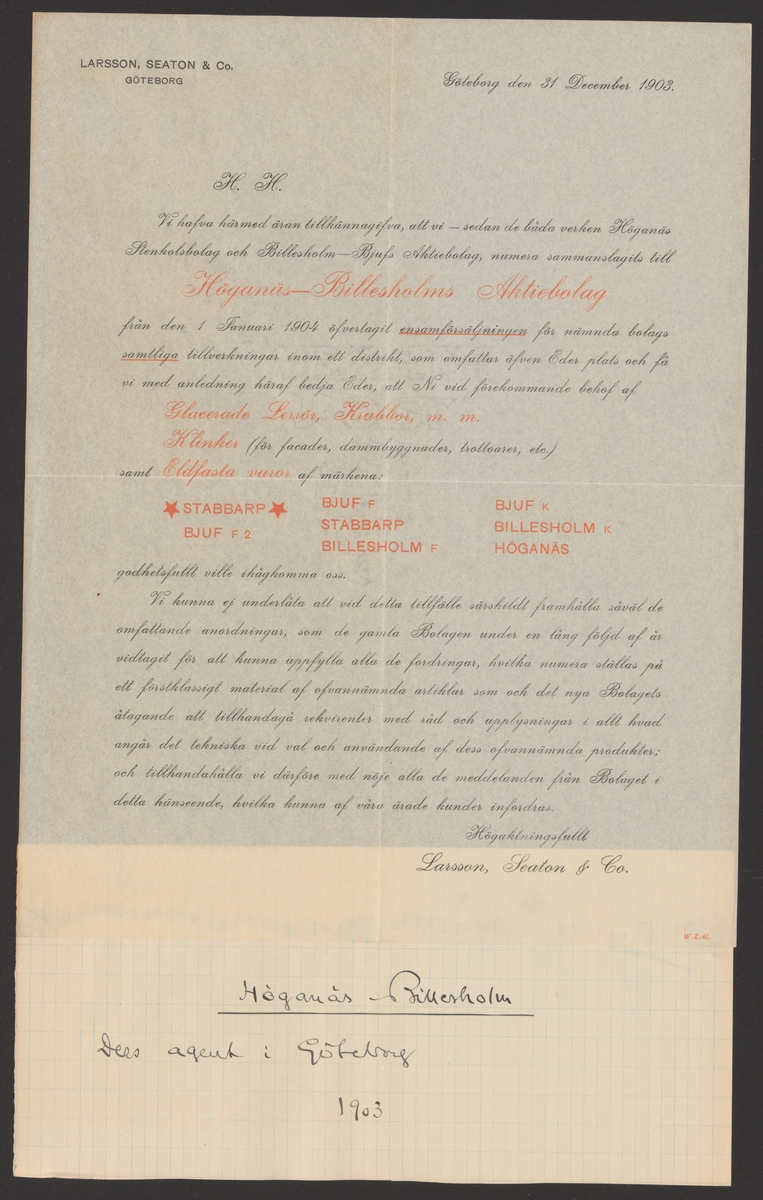 LARSSON, SEATON & Co.
GÖTEBORG
Göteborg den 31 December 1903.
H. H.
Vi hafva härmed äran tillkännagifva, att vi — sedan de båda verken Höganäs
Stenkolsbolag och Billesholm—Bjufs Aktiebolag, numera sammanslagits till
Höganäs—Billesholms Aktiebolag
från den 1 Januari 1904 öfvertagit ensamförsäljningen för nämnda bolags
samtliga tillverkningar inom ett distrikt, som omfattar äfven Eder plats och få
vi med anledning häraf bedja Eder, att Ni vid förekommande behof af
Glacerade Lerrör, Krubbor, m. m.
Klinker (för facader, dammbyggnader, trottoarer, etc.)
samt Eldfasta varor af märkena:
★ STABBARP ★ BJUF F BJUF K
BJUF F 2 STABBARP BILLESHOLM K
BILLESHOLM F HÖGANÄS
godhetsfullt ville ihågkomma oss.
Vi kunna ej underlåta att vid detta tillfälle särskildt framhålla såväl de
omfattande anordningar, som de gamla Bolagen under en lång följd af år
vidtagit för att kunna uppfylla alla de fordringar, hvilka numera ställas på
ett förstklassigt material af ofvannämnda artiklar som ock det nya Bolagets
åtagande att tillhandagå rekvirenter med råd och upplysningar i allt hvad
angår det tekniska vid val och användande af dess ofvannämnda produkter;
och tillhandahålla vi därföre med nöje alla de meddelanden från Bolaget i
detta hänseende, hvilka kunna af våra ärade kunder infordras.
Högaktningsfullt
Larsson, Seaton & Co.
W. Z. M.
Höganäs - Billesholm
Dess agent i Göteborg
1903